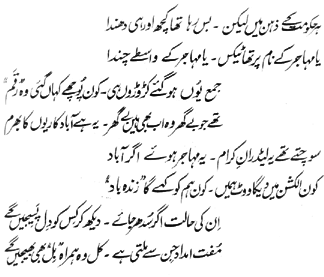 ہر حکومت کے ذہن میں لیکن ۔ بس رہا تھا کچھ اور ہی دھندا
یا مہاجر کے نام پر تھا ٹیکس ۔ یا مہاجر کے واسطے چندا
جمع یوں ہو گئے کروڑوں ہی ۔ کون پوچھے کہاں گئی وہ "رقم"
تھے جو بے گھر وہ اب بھی ہیں بے گھر ۔ یہ ہے آبادکاریوں کا بھرم
سوچتے تھے یہ لیڈرانِ کرام ۔ یہ مہاجر ہوئے اگر آباد
کون الکشن میں دیگا ووٹ ہمیں ۔ کون ہم کو کہے گا "زندہ باد"
اِن کی حالت اگر سدھر جائے ۔ دیکھ کر کس کو دل پسیجیں گے
مُفت امداد جن سے ملتی ہے ۔ کل وہ ہمراہ "بل" بھی بھیجیں گے